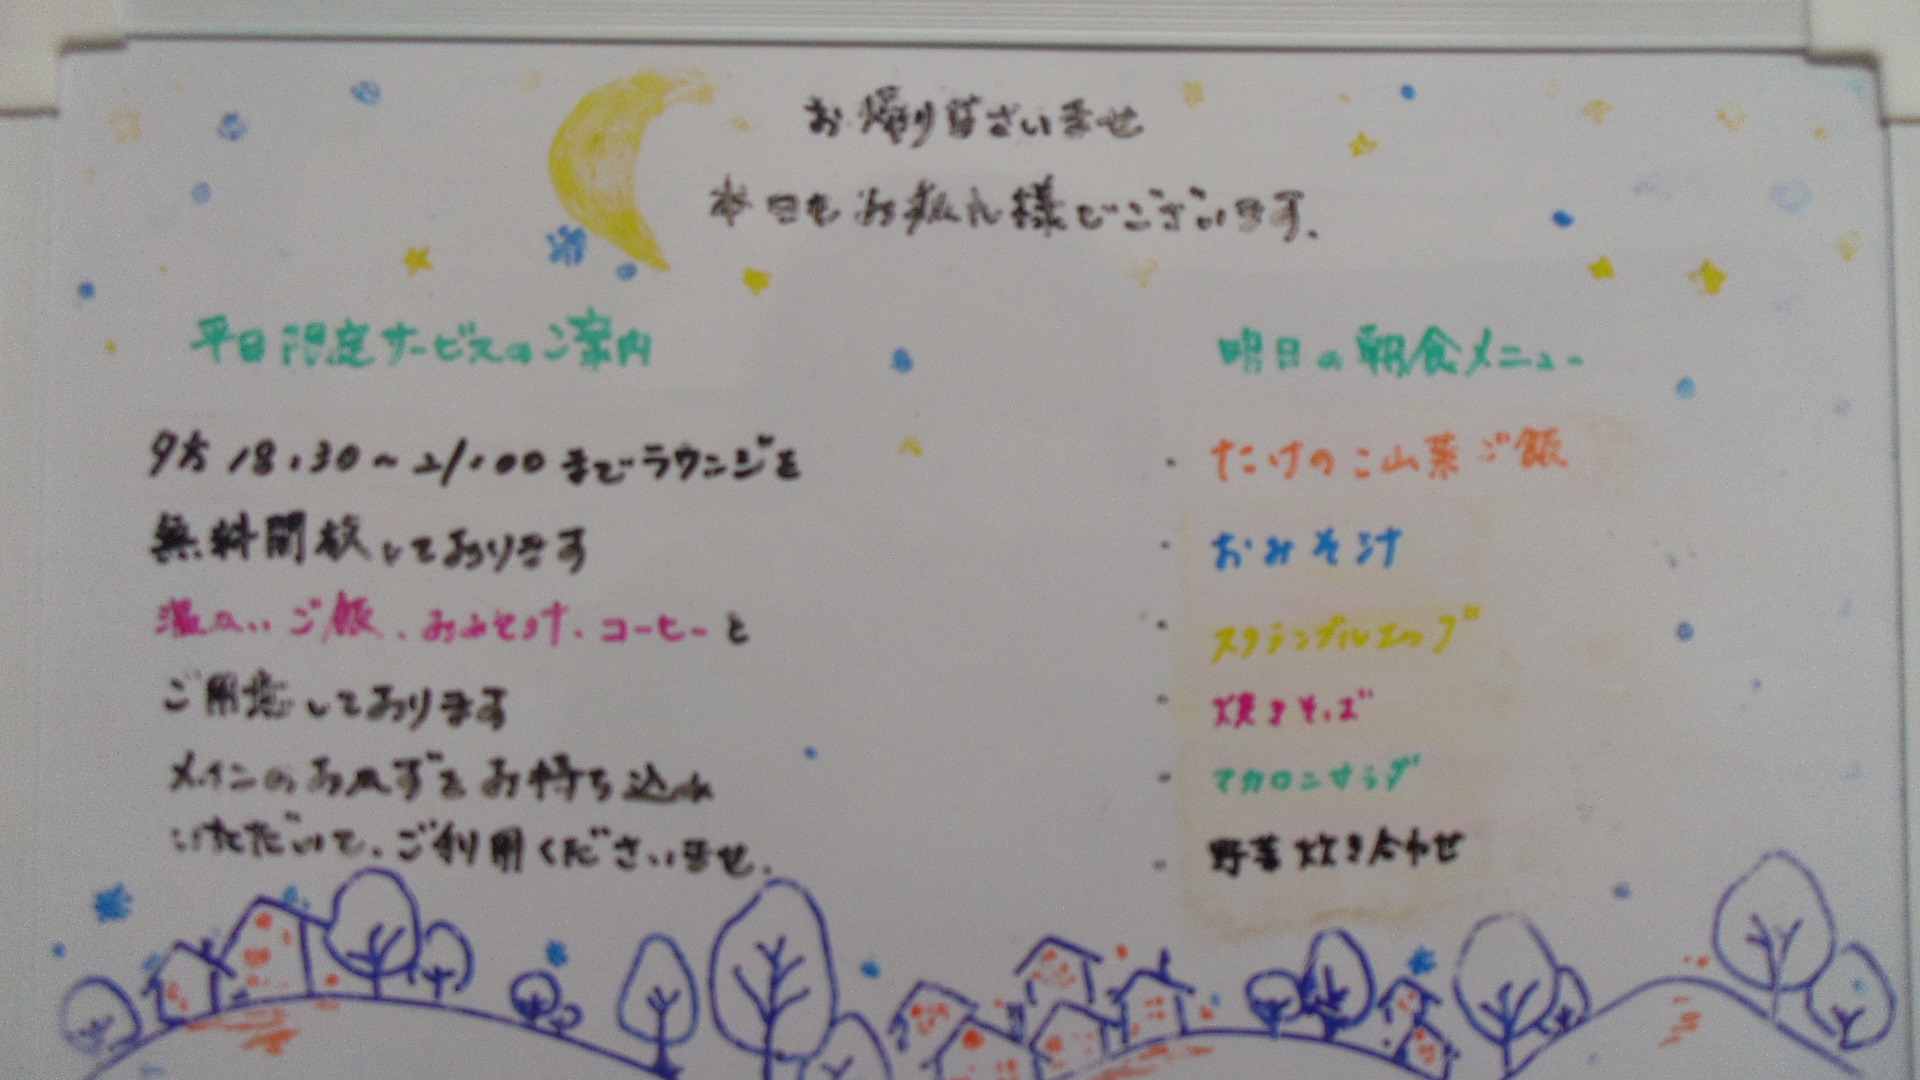 お帰りなさいませ
本日もお疲れ様でございます.
平日限定サービスのご案内
夕方 18:30～21:00 までラウンジを
無料開放しております
温かいご飯、おみそ汁、コーヒーと
ご用意しております
メインのおかずをお持ち込み
いただいて、ご利用くださいませ.
明日の朝食メニュー
・たけのこ山菜ご飯
・おみそ汁
・スクランブルエッグ
・焼きそば
・マカロニサラダ
・野菜炊き合わせ